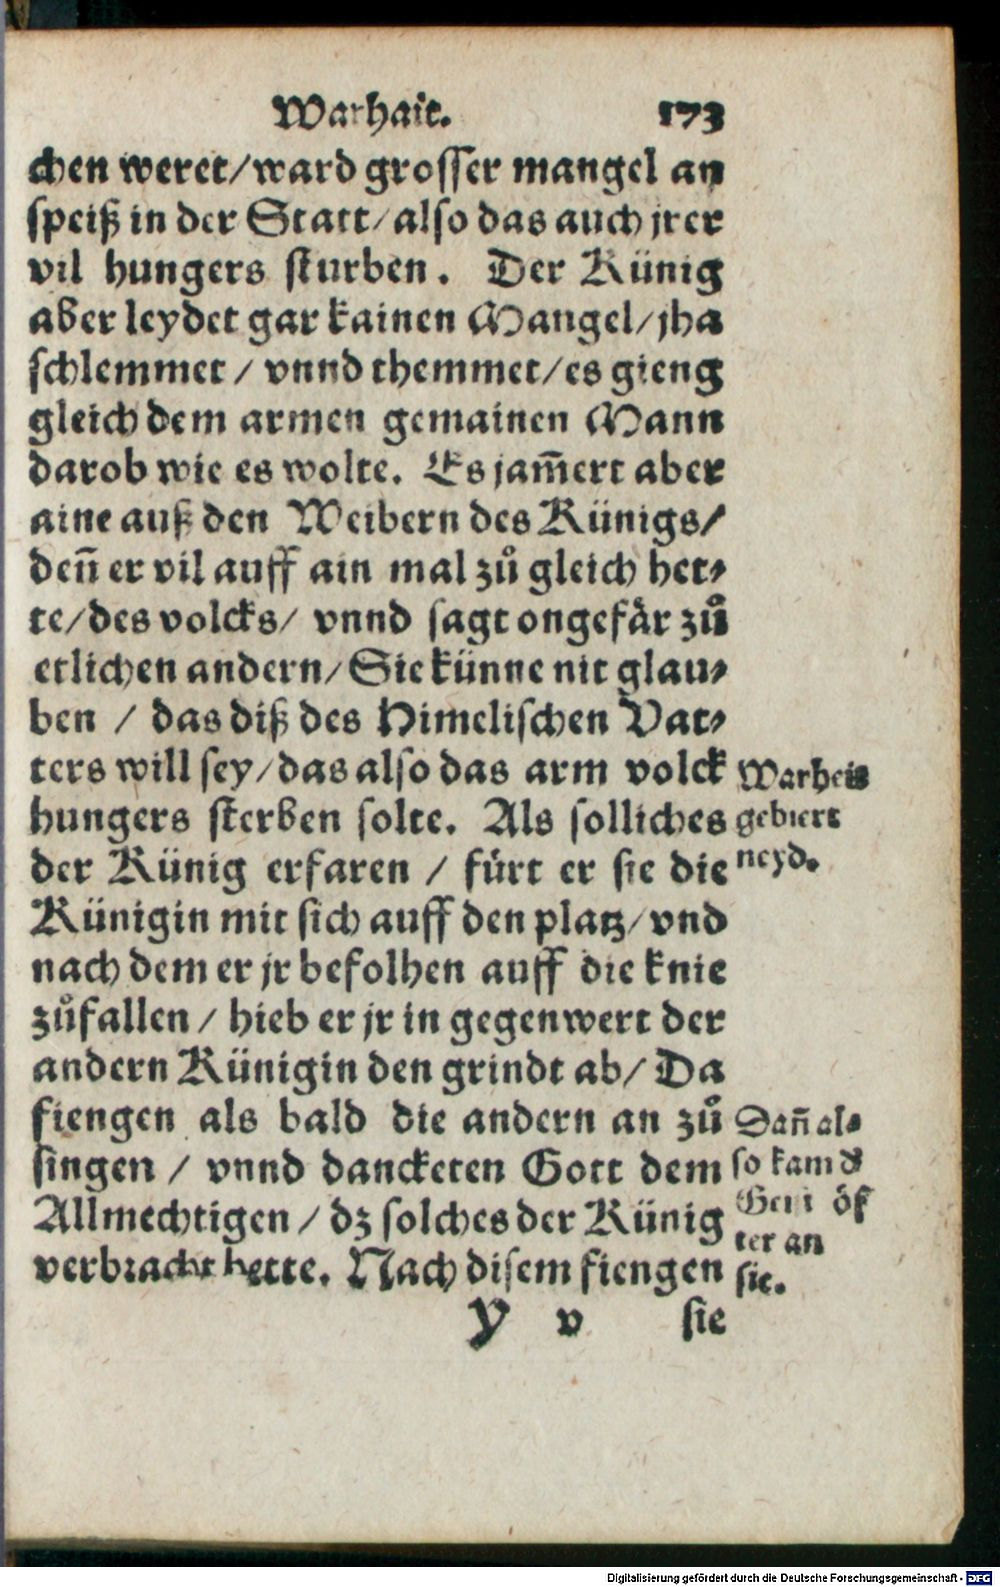 Warhait. 173
chen weret/ward grosser mangel an
speiß in der Statt/also das auch jrer
vil hungers sturben. Der Künig
aber leydet gar kainen Mangel/jha
schlemmet / vnnd themmet/es gieng
gleich dem armen gemainen Mann
darob wie es wolte. Es jam̄ert aber
aine auß den Weibern des Künigs/
den̄ er vil auff ain mal zů gleich het⸗
te/des volcks/ vnnd sagt ongefär zů
etlichen andern/Sie künne nit glau⸗
ben / das diß des Himelischen Vat⸗
ters will sey/das also das arm volck
hungers sterben solte. Als solliches
der Künig erfaren / fürt er sie die
Künigin mit sich auff den platz/vnd
nach dem er jr befolhen auff die knie
zůfallen / hieb er jr in gegenwert der
andern Künigin den grindt ab/ Da
fiengen als bald die andern an zů
singen / vnnd dancketen Gott dem
Allmechtigen / dz solches der Künig
verbracht hette. Nach disem fiengen
Y v sie
Warheit
gebiert
neyd.
Dan̄ al⸗
so kam d
öf
ter an
sie.
Digitalisierung gefördert durch die Deutsche Forschungsgemeinschaft - DFG